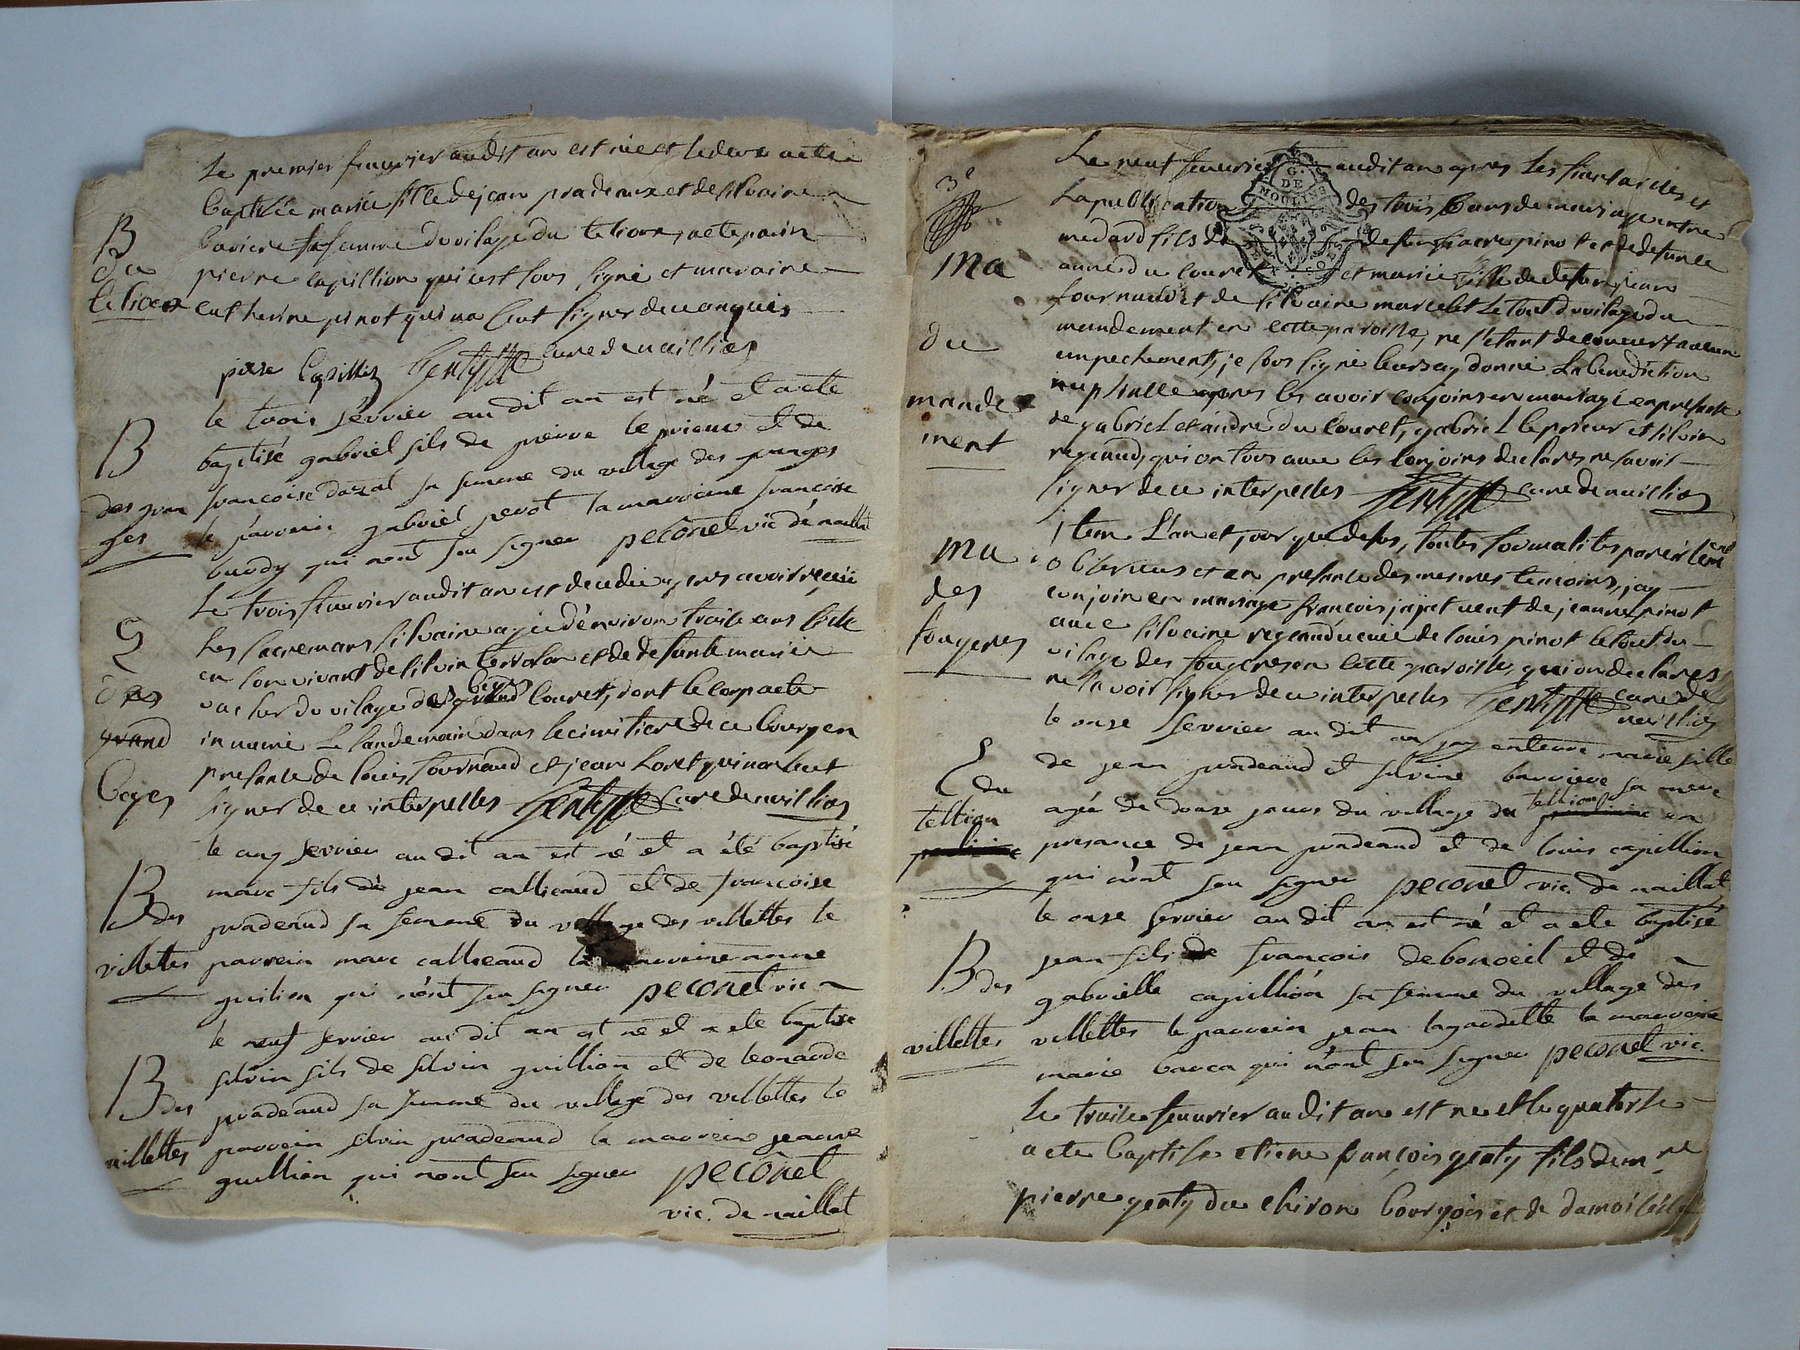 Le premier feuvrier audit an est née et le deux a ete
Baptizée marie fille de jean pradeaux et de silvaine
Bariere sa femme du vilage du telioux, a ete parin
B
du
telioux
pierre capillion qui est sous signé et maraine
catherine pinot qui na seut signer de ce anquis
piere Capillion Gentÿ curé de naillias
le trois fevrier au dit an est né et a eté
B
des gran
ges
baptisé gabriel fils de pierre le prieur et de
francoise dazat sa femme du village des granges
le parrein gabriel perot la marraine francoise
burdy qui nont seu signer peconet vic. de naillat
Le trois feuvrier audit an est decedée apres avoir reçeü
Les sacremans silvaine agée d'environ traise ans fille
E
des
grand
Beges
en son vivant de silvin et de defunte marie
vacher du vilage des grand Beges Couret, dont le corp a ete
innumé Le landemain dans le cimitiere de ce bourg en
presance de louis fournaud et jean Loret qui non seut
signer de ce interpelles Gentÿ Curé de naillias
le cinq fevrier au dit an est né et a été baptisé
B des
villettes
marc fils de jean callieaud et de francoise
pradeaud sa femme du village des villettes le
parrein marc callieaud la marreine anne
guilion qui n'ont seu signer peconet vic
le neuf fevrier au dit an est né et a ete baptisé
B des
villettes
silvin fils de silvin guillion et de leonarde
pradeaud sa femme du village des villettes le
parrein silvin pradeaud la marreine jeanne
guillion qui nont seu signer peconet
vic. de naillat
3e
Le neut feuvrier audit an apres Les fiansailles et
La publication des trois bans de mariage entre
G.
DE
MOULINS
ma
du
mande
ment
medard fils de defun fiacre pinot et de defunte
anne du couret et marie fille de defun jean
fournaud et de silvaine marcelet Le tout du vilage du
mandement en cette paroisse, ne setant decouvert aucun
empechement, je sous signé leurs ay donné La benediction
nuptialle apres les avoir conjoins en mariage en presance
de gabriel et andré du Couret, gabriel le prieur et silvin
regeaud, qui on tous avec les conjoins declarés ne savoir
signer de ce interpelles Gentÿ curé de naillias
ma
des
fougeres
jtem L'an et jour que desus, toutes formalites pareillement
observées et en presance des mesmes temoins, jay
conjoin en mariage françois jajat veuf de jeanne pinot
avec silvaine regeaud veuve de louis pinot le tout du
vilage des fougeres en cette paroisse, qui on declares
ne savoir signer de ce interpelles Gentÿ curé de
naillias
le onze fevrier au dit an jay enterré marie fille
E du
tellion
de jean pradeaud et silvine barriere sa mere
agée de douze jours du village du tellioux en
presance de jean pradeaud et de louis capillion
qui n'ont seu signer peconet vic. de naillat
le onze fevrier au dit an est né et a ete baptisé
B des
villettes
jean fils de francois debonoeil et de
gabrielle capillion sa femme du village des
villettes le parrein jean lagardette la marreine
marie barca qui n'ont seu signer peconet vic.
Le traise feuvrier audit an est ne et le quatorse
a ete Baptise etiene françois genty fils de m re
pierre genty du chiron bourgois et de damoiselle